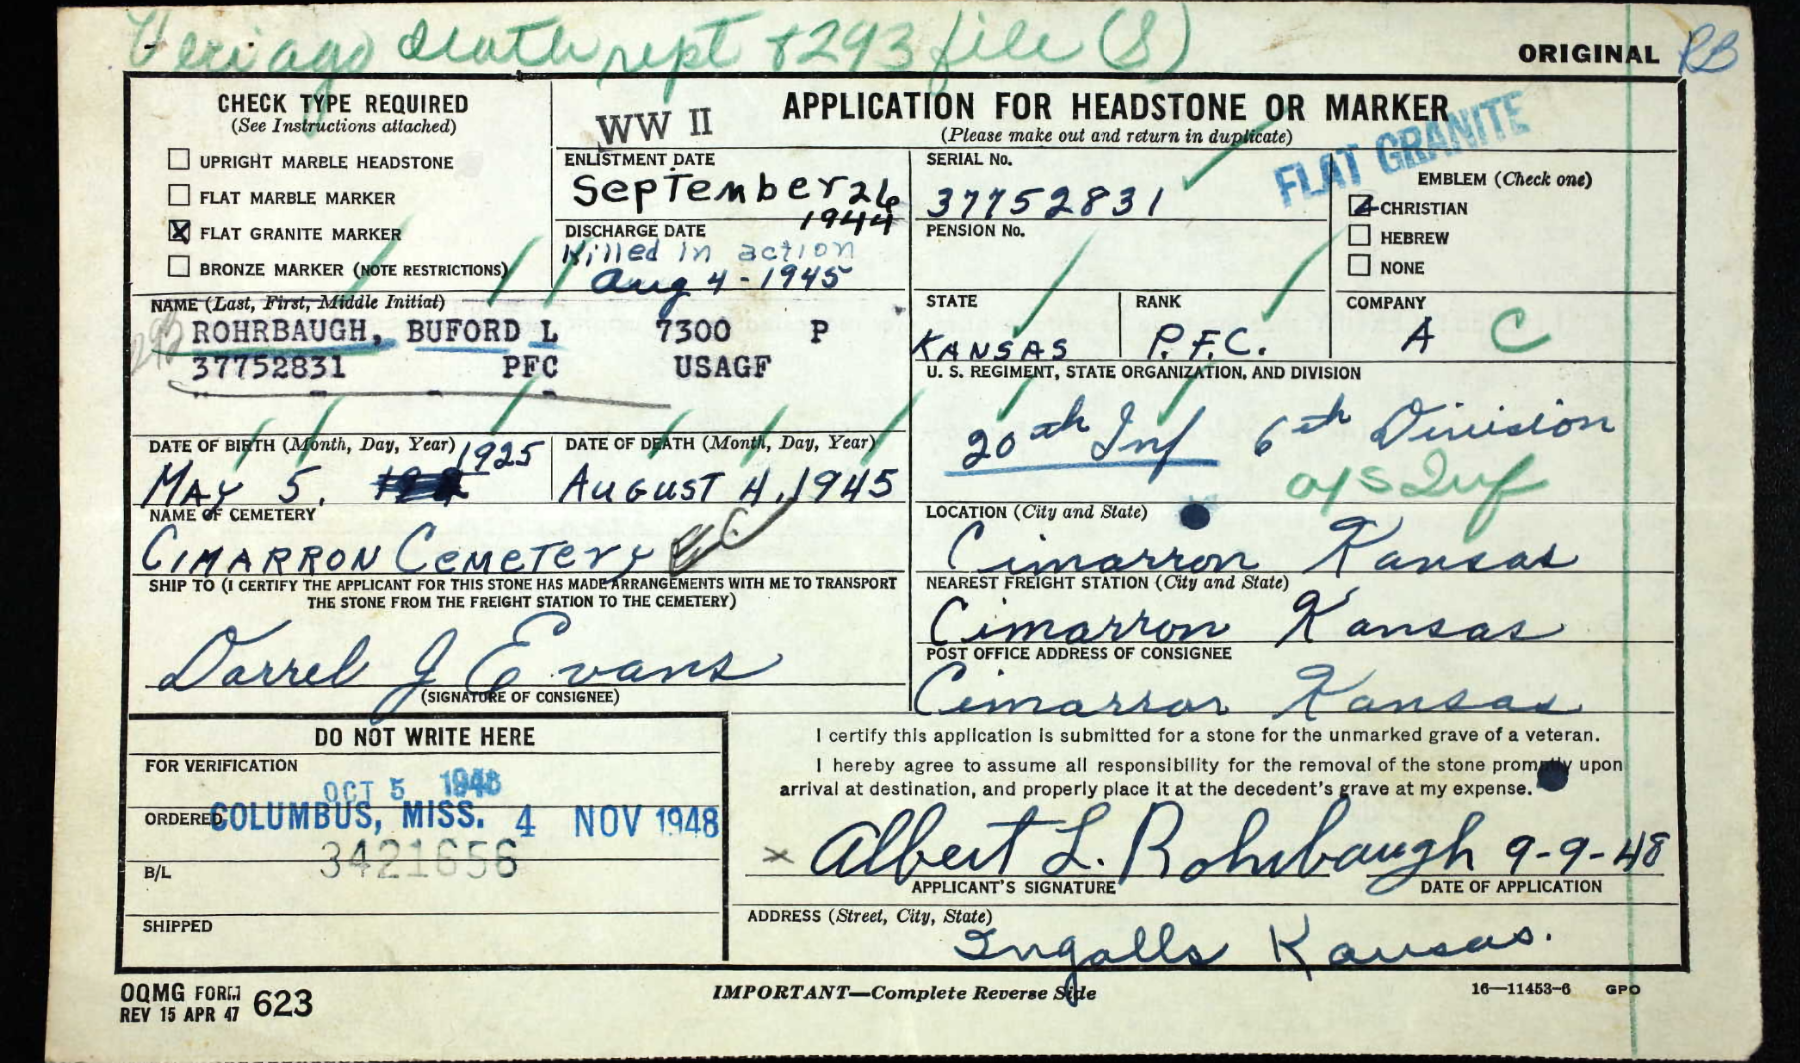 Veri ago death rept & 293 file (S)
ORIGINAL RB
CHECK TYPE REQUIRED
(See Instructions attached)
UPRIGHT MARBLE HEADSTONE
FLAT MARBLE MARKER
☒ FLAT GRANITE MARKER
BRONZE MARKER (NOTE RESTRICTIONS)
WW II
APPLICATION FOR HEADSTONE OR MARKER
(Please make out and return in duplicate)
FLAT GRANITE
ENLISTMENT DATE
September 26
1944
DISCHARGE DATE
Killed in action
Aug 4 - 1945
SERIAL No.
37752831
PENSION No.
EMBLEM (Check one)
☒ CHRISTIAN
HEBREW
NONE
NAME (Last, First, Middle Initial)
ROHRBAUGH, BUFORD L 7300 P
37752831 PFC USAGF
STATE
KANSAS
RANK
P.F.C.
COMPANY
A C
U. S. REGIMENT, STATE ORGANIZATION, AND DIVISION
20th Inf 6th Division
o/s Inf
DATE OF BIRTH (Month, Day, Year)
1925
MAY 5.
DATE OF DEATH (Month, Day, Year)
AUGUST 4, 1945
NAME OF CEMETERY
CIMARRON CEMETERY
LOCATION (City and State)
Cimarron Kansas
SHIP TO (I CERTIFY THE APPLICANT FOR THIS STONE HAS MADE ARRANGEMENTS WITH ME TO TRANSPORT
THE STONE FROM THE FREIGHT STATION TO THE CEMETERY)
Darrel J Evans
(SIGNATURE OF CONSIGNEE)
NEAREST FREIGHT STATION (City and State)
Cimarron Kansas
POST OFFICE ADDRESS OF CONSIGNEE
Cimarron Kansas
DO NOT WRITE HERE
FOR VERIFICATION
OCT 5 1948
ORDERED COLUMBUS, MISS. 4 NOV 1948
3421656
B/L
SHIPPED
I certify this application is submitted for a stone for the unmarked grave of a veteran.
I hereby agree to assume all responsibility for the removal of the stone promptly upon
arrival at destination, and properly place it at the decedent's grave at my expense.
x Albert L. Rohrbaugh 9-9-48
APPLICANT'S SIGNATURE DATE OF APPLICATION
ADDRESS (Street, City, State)
Ingalls Kansas.
OQMG FORM 623
REV 15 APR 47
IMPORTANT—Complete Reverse Side
16—11453-6 GPO